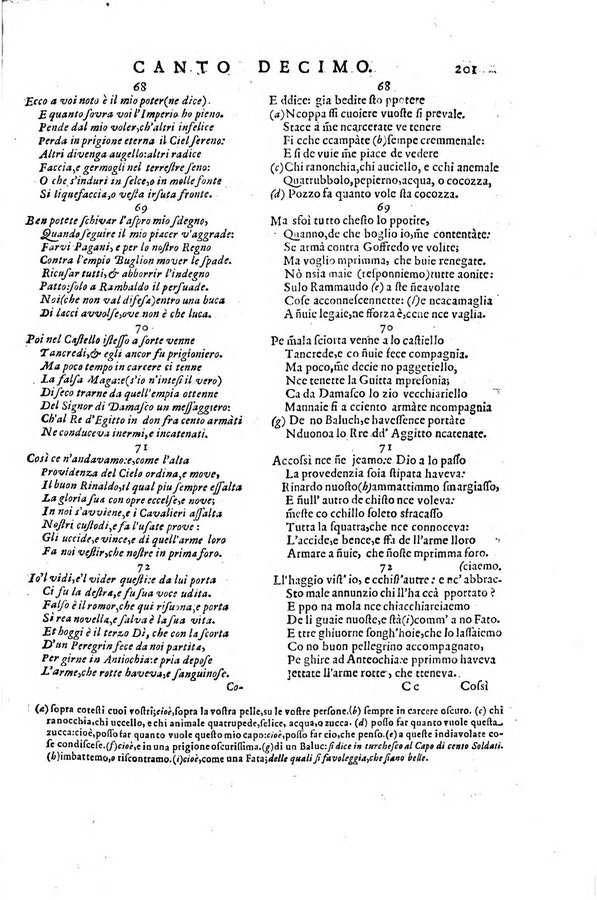 CANTO DECIMO. 201
68
Ecco a voi noto è il mio poter (ne dice).
E quanto sovra voi l'Imperio ho pieno.
Pende dal mio voler, ch'altri infelice
Perda in prigione eterna il Ciel sereno:
Altri divenga augello: altri radice
Faccia, e germogli nel terrestre seno:
O che s'induri in selce, o in molle fonte
Si liquefaccia, o vesta irsuta fronte.
69
Ben potete schivar l'aspro mio sdegno,
Quando seguire il mio piacer v'aggrade:
Farvi Pagani, e per lo nostro Regno
Contra l'empio Buglion mover le spade.
Ricusar tutti, & abborrir l'indegno
Patto: solo a Rambaldo il persuade.
Noi (che non val difesa) entro una buca
Di lacci avvolse, ove non è che luca.
70
Poi nel Castello istesso a sorte venne
Tancredi, & egli ancor fu prigioniero.
Ma poco tempo in carcere ci tenne
La falsa Maga: e (s'io n'intesi il vero)
Di seco trarne da quell'empia ottenne
Del Signor di Damasco un messaggiero:
Ch'al Re d'Egitto in don fra cento armàti
Ne conduceva inermi, e incatenati.
71
Così ce n'andavamo: e, come l'alta
Providenza del Cielo ordina, e move,
Il buon Rinaldo, il qual piu sempre essalta
La gloria sua con opre eccelse, e nove;
In noi s'avviene, e i Cavalieri assalta
Nostri custodi, e fa l'usate prove:
Gli uccide, e vince, e di quell'arme loro
Fa noi vestir, che nostre in prima foro.
72
Io'l vidi, e'l vider questi: e da lui porta
Ci fu la destra, e fu sua voce udita.
Falso è il romor, che quì risuona, e porta
Sì rea novella, e salva è la sua vita.
Et hoggi è il terzo Dì, che con la scorta
D'un Peregrin fece da noi partita,
Per girne in Antiochia: e pria depose
L'arme, che rotte haveva, e sanguinose.
Co-
68
E ddice: gia bedite sto ppotere
(a) Ncoppa ssi cuoiere vuoste si prevale.
Stace a m̃e ncarcerate ve tenere
Fi cche ccampàte (b) sempe cremmenale:
E si de vuie m̃e piace de vedere
(c) Chi ranonchia, chi auciello, e cchi anemale
Quatrubbolo, pepierno, acqua, o cocozza,
(d) Pozzo fa quanto vole sta cocozza.
69
Ma sfoi tutto chesto lo ppotite,
Quanno, de che boglio io, me contentàte:
Se ncammenà contra Goffredo ve volite;
Ma voglio mprimma, che buie renegate.
Nò nsià maie (responniemo) tutte aonite:
Sulo Rammaudo (e) a ste ñeavolate
Cose acconnescennette: (f) e ncacamaglia
A ñuie legaie, ne sforza è, ccene nce vaglia.
70
Pe mala sciorta venne a lo castiello
Tancrede, e co ñuie fece compagnia.
Ma poco, m̃e decie no paggetiello,
Nce tenerte la Guitta mpresonia;
Ca da Damasco lo zio vecchiariello
Mannaie fi a cciento armàte ncompagnia
(g) De no Baluch, e haveffence portàte
Nduono a lo Rre dd' Aggitto ncatenate.
71
Accossì nce ñe jeamo: e Dio a lo passo
La provedenzia soia stipata haveva:
Rinardo nuosto (h) ammattimmo smargiasso,
E ñull'autro de chisto nce voleva:
m̃este co cchillo soleto sfracasso
Tutta la squatra, che nce connoceva:
L'accide, e bence, e ffa de ll'arme lloro
Armare a ñuie, che ñoste mprimma foro.
72 (sciaemo.
Ll'haggio vist' io, e cchist'autre: e nc' abbrac-
Sto male annunzio chi ll'ha ccà pportato?
E ppo na mola nce chiacchiariaciemo
De li guaie nuoste, e stà (i) comm' a no Fato.
E ttre ghiuorne songh'hoie, che lo lassaiemo
Co no buon pellegrino accompagnato,
Pe ghire ad Anteochia: e pprimmo havea
Jettate ll'arme rotte, che tteneva.
Cc Cossì
(a) sopra cotesti cuoi vostri; cioè, sopra la vostra pelle, su le vostre persone. (b) sempre in carcere oscuro. (c) chi
ranocchia, chi uccello, e chi animale quatrupede, selice, acqua, o zucca. (d) posso far quanto vuole questa
zucca: cioè, posso far quanto vuole questo mio capo: cioè, posso far ciò, che penso. (e) a queste indiavolate co-
se condiscese. (f) cioè, in una prigione oscurissima. (g) di un Baluc: si dice in turchesco al Capo di cento Soldati.
(h) imbattemmo, o riscontramo. (i) cioè, come una Fata; delle quali si favoleggia, che siano belle.